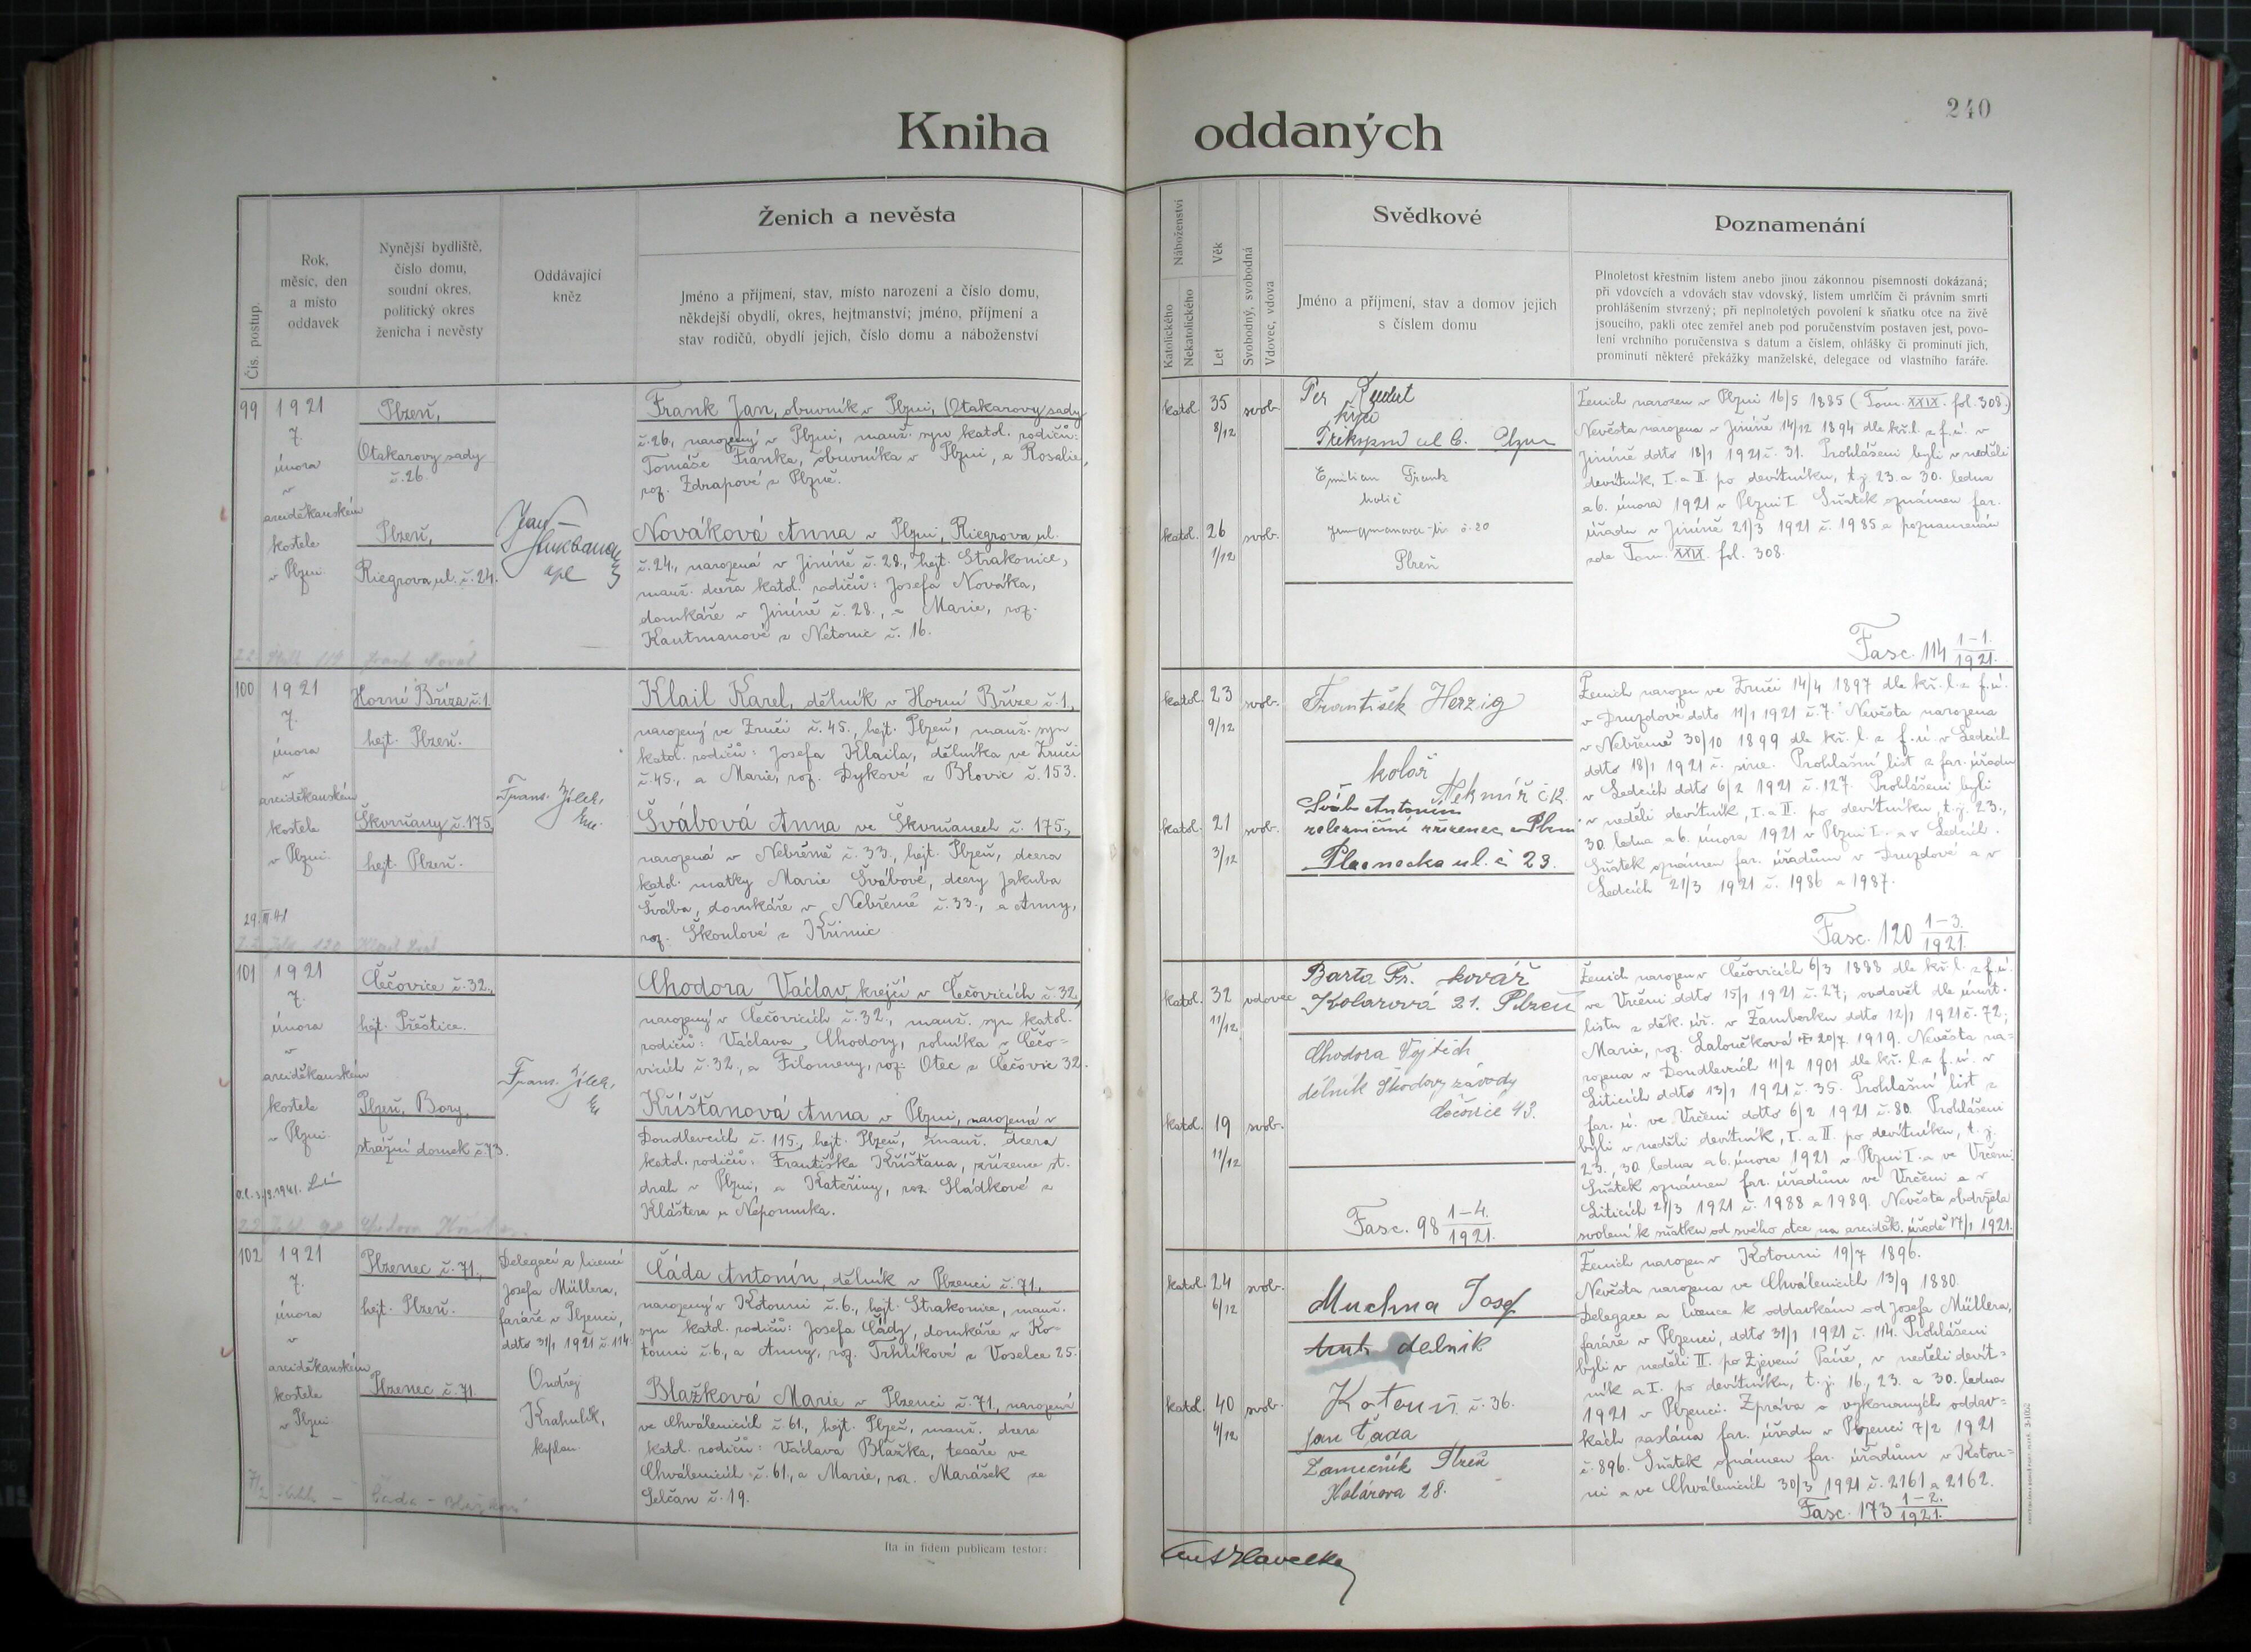 240
Kniha oddaných
Čís. postup.
Rok,
měsíc, den
a místo
oddavek
Nynější bydliště,
číslo domu,
soudní okres,
politický okres
ženicha i nevěsty
Oddávající
kněz
Ženich a nevěsta
Jméno a přijmení, stav, místo narození a číslo domu,
někdejší obydlí, okres, hejtmanství; jméno, přijmení a
stav rodičů, obydlí jejich, číslo domu a náboženství
Náboženství
Katolického
Nekatolického
Věk
Let
Svobodný, svobodná
Vdovec, vdova
Svědkové
Jméno a přijmení, stav a domov jejich
s číslem domu
Poznamenání
Plnoletost křestním listem anebo jinou zákonnou písemností dokázaná;
při vdovcích a vdovách stav vdovský, listem umrlčím či právním smrti
prohlášením stvrzený; při neplnoletých povolení k sňatku otce na živě
jsoucího, pakli otec zemřel aneb pod poručenstvím postaven jest, povo-
lení vrchního poručenstva s datum a číslem, ohlášky či prominutí jich,
prominutí některé překážky manželské, delegace od vlastního faráře.
99
1921
7.
února
v
arciděkanském
kostele
v Plzni.
Plzeň,
Otakarovy sady
č. 26.
Plzeň,
Riegrova ul. č. 24.
Jan
Frank Jan, obuvník v Plzni, (Otakarovy sady
č. 26, narozený v Plzni, manž. syn katol. rodičů:
Tomáše Franka, obuvníka v Plzni, a Rosalie,
roz. Zdrapové z Plzně.
Nováková Anna v Plzni, Riegrova ul.
č. 24., narozená v Jiníně č. 28., hejt. Strakonice,
manž. dcera katol. rodičů: Josefa Nováka,
domkáře v Jiníně č. 28., a Marie, roz.
Kautmanové z Netonic č. 16.
katol. 35 8/12 svob.
katol. 26 1/12 svob.
Plzeň
Emilian Frank
holič
Jungmanova tř. č. 20
Plzeň
Ženich narozen v Plzni 16/5 1885 (Tom. XXIX. fol. 308.)
Nevěsta narozena v Jiníně 14/12 1894 dle kř. l. z f. ú. v
Jiníně ddto 18/1 1921 č. 31. Prohlášeni byli v neděli
devítník, I. a II. po devítníku, t. j. 23. a 30. ledna
a 6. února 1921 v Plzni I. Sňatek oznámen far.
úřadu v Jiníně 21/3 1921 č. 1985 a poznamenán
zde Tom. XXIX. fol. 308.
Fasc. 114 1-1./1921.
100
1921
7.
února
v
arciděkanském
kostele
v Plzni.
29. III. 41
Horní Bříza č. 1
hejt. Plzeň.
Škvrňany č. 175,
hejt. Plzeň.
Frant. Jílek,
Klail Karel, dělník v Horní Bříze č. 1,
narozený ve Zruči č. 45., hejt. Plzeň, manž. syn
katol. rodičů: Josefa Klaila, dělníka ve Zruči
č. 45., a Marie, roz. Dykové z Blovic č. 153.
Švábová Anna ve Škvrňanech č. 175.,
narozená v Nebřemě č. 33., hejt. Plzeň, dcera
katol. matky Marie Švábové, dcery Jakuba
Švába, domkáře v Nebřemě č. 33., a Anny,
roz. Škoulové z Křimic.
katol. 23 9/12 svob.
katol. 21 3/12 svob.
František Herzig
kolář
Nekmíř č 12.
Šváb Antonín
železniční zřízenec Plzni
Plasnecka ul. č 23.
Ženich narozen ve Zruči 14/4 1897 dle kř. l. z f. ú.
v Druzdově ddto 11/1 1921 č. 7. Nevěsta narozena
v Nebřemě 30/10 1899 dle kř. l. z f. ú. v Ledcích
ddto 18/1 1921 č. sine. Prohlašní list z far. úřadu
v Ledcích ddto 6/2 1921 č. 127. Prohlášeni byli
v neděli devítník, I. a II. po devítníku, t. j. 23.,
30. ledna a 6. února 1921 v Plzni I. a v Ledcích.
Sňatek oznámen far. úřadům v Druzdově a v
Ledcích 21/3 1921 č. 1986 a 1987.
Fasc. 120 1-3./1921.
101
1921
7.
února
v
arciděkanském
kostele
v Plzni.
Čečovice č. 32.,
hejt. Přeštice.
Plzeň, Bory,
strážní domek č. 73.
Frant. Jílek,
Chodora Václav, krejčí v Čečovicích č. 32,
narozený v Čečovicích č. 32., manž. syn katol.
rodičů: Václava Chodory, rolníka v Čečo-
vicích č. 32., a Filomeny, roz. Otec z Čečovic 32.
Kříšťanová Anna v Plzni, narozená v
Doudlevcích č. 115., hejt. Plzeň, manž. dcera
katol. rodičů: Františka Kříšťana, zřízence st.
drah v Plzni, a Kateřiny, roz. Hládkové z
Kláštera u Nepomuka.
katol. 32 11/12 vdovec
katol. 19 11/12 svob.
Barta Fr. kovář
Kolarová 21. Plzeň
Chodora Vojtěch
dělník Škodovy závody
Čečovice 43.
Fasc. 98 1-4./1921.
Ženich narozen v Čečovicích 6/3 1888 dle kř. l. z f. ú.
ve Vrčeni ddto 15/1 1921 č. 27; ovdověl dle úmrt.
listu z děk. úř. v Žamberku ddto 12/1 1921 č. 72;
Marie, roz. Laloučková † 20/7. 1919. Nevěsta na-
rozena v Doudlevcích 11/2 1901 dle kř. l. z f. ú. v
Liticích ddto 13/1 1921 č. 35. Prohlašní list z
far. ú. ve Vrčeni ddto 6/2 1921 č. 80. Prohlášeni
byli v neděli devítník, I. a II. po devítníku, t. j.
23., 30. ledna a 6. února 1921 v Plzni I. a ve Vrčeni.
Sňatek oznámen far. úřadům ve Vrčeni a v
Liticích 21/3 1921 č. 1988 a 1989. Nevěsta obdržela
svolení k sňatku od svého otce na arciděk. úřadě 17/1 1921.
102
1921
7.
února
v
arciděkanském
kostele
v Plzni.
Plzenec č. 71.,
hejt. Plzeň.
Plzenec č. 71.
Delegací a licencí
Josefa Müllera,
faráře v Plzenci,
ddto 31/1 1921 č. 114.
Ondřej
Krahulík,
kaplan.
Čáda Antonín, dělník v Plzenci č. 71.,
narozený v Kotouni č. 6., hejt. Strakonice, manž.
syn katol. rodičů: Josefa Čády, domkáře v Ko-
touni č. 6, a Anny, roz. Trhlíkové z Voselce 25.
Blažková Marie v Plzenci č. 71., narozená
ve Chválenicích č. 61., hejt. Plzeň, manž. dcera
katol. rodičů: Václava Blažka, tesaře ve
Chválenicích č. 61., a Marie, roz. Marášek ze
Selčan č. 19.
katol. 24 6/12 svob.
katol. 40 4/12 svob.
Muchna Josef
delnik
Kotouň č. 36.
Jan Čada
Zamečník Plzeň
Kolárova 28.
Ženich narozen v Kotouni 19/7 1896.
Nevěsta narozena ve Chválenicích 13/9 1880.
Delegace a licence k oddavkám od Josefa Müllera,
faráře v Plzenci, ddto 31/1 1921 č. 114. Prohlášeni
byli v neděli II. po Zjevení Páně, v neděli devít-
ník a I. po devítníku, t. j. 16., 23. a 30. ledna
1921 v Plzenci. Zpráva o vykonaných oddav-
kách zaslána far. úřadu v Plzenci 7/2 1921
č. 896. Sňatek oznámen far. úřadům v Kotou-
ni a ve Chválenicích 30/3 1921 č. 2161 a 2162.
Fasc. 173 1-2./1921.
Ita in fidem publicam testor:
Ant. Havelka